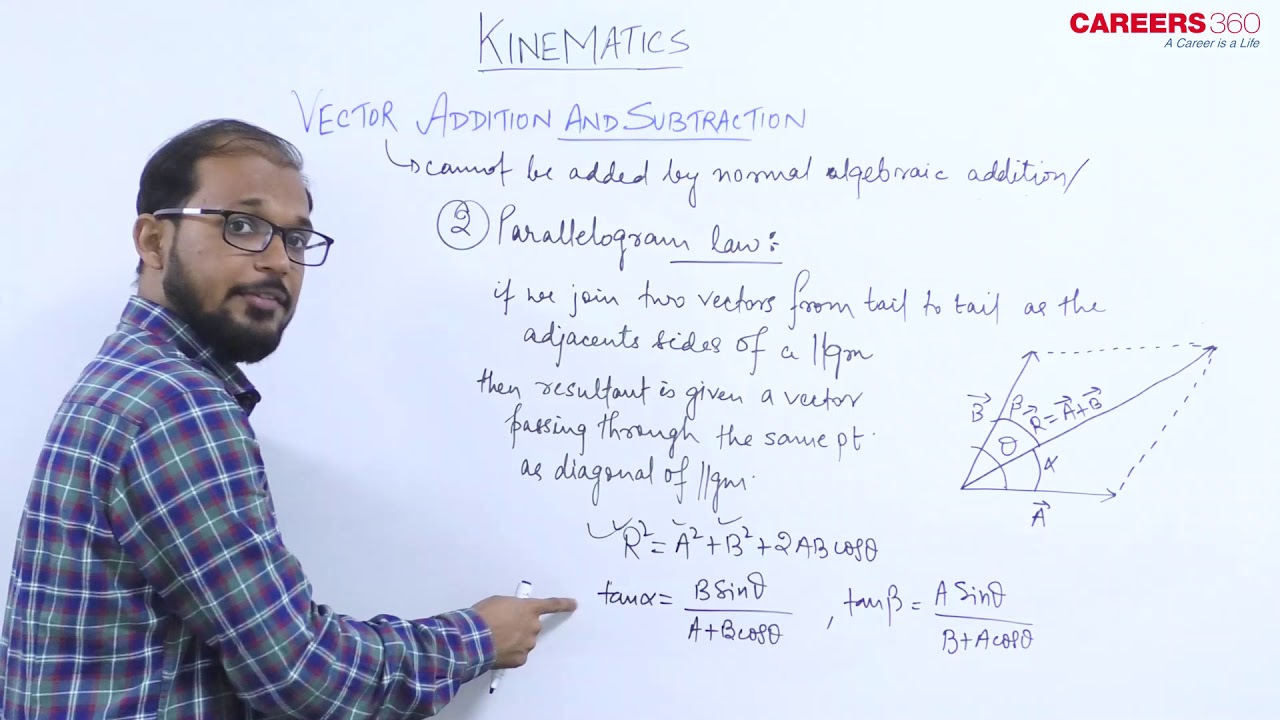 CAREERS360
A Career is a Life
KINEMATICS
VECTOR ADDITION AND SUBTRACTION
↳ cannot be added by normal algebraic addition/
② Parallelogram law:
if we join two vectors from tail to tail as the
adjacents sides of a ||gm
then resultant is given a vector
passing through the same pt.
as diagonal of ||gm.
B⃗ β R⃗ = A⃗ + B⃗
θ α
A⃗
✓ R² = A² + B² + 2ABcosθ
tanα = B Sinθ / A+Bcosθ , tanβ = A Sinθ / B+Acosθ